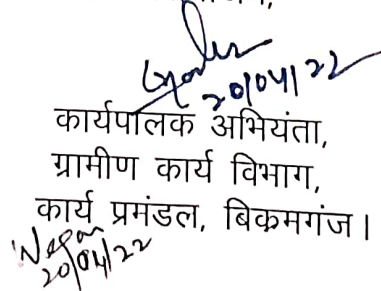 20/04/22
कार्यपालक अभियंता,
ग्रामीण कार्य विभाग,
कार्य प्रमंडल, बिकमगंज।
20/04/22